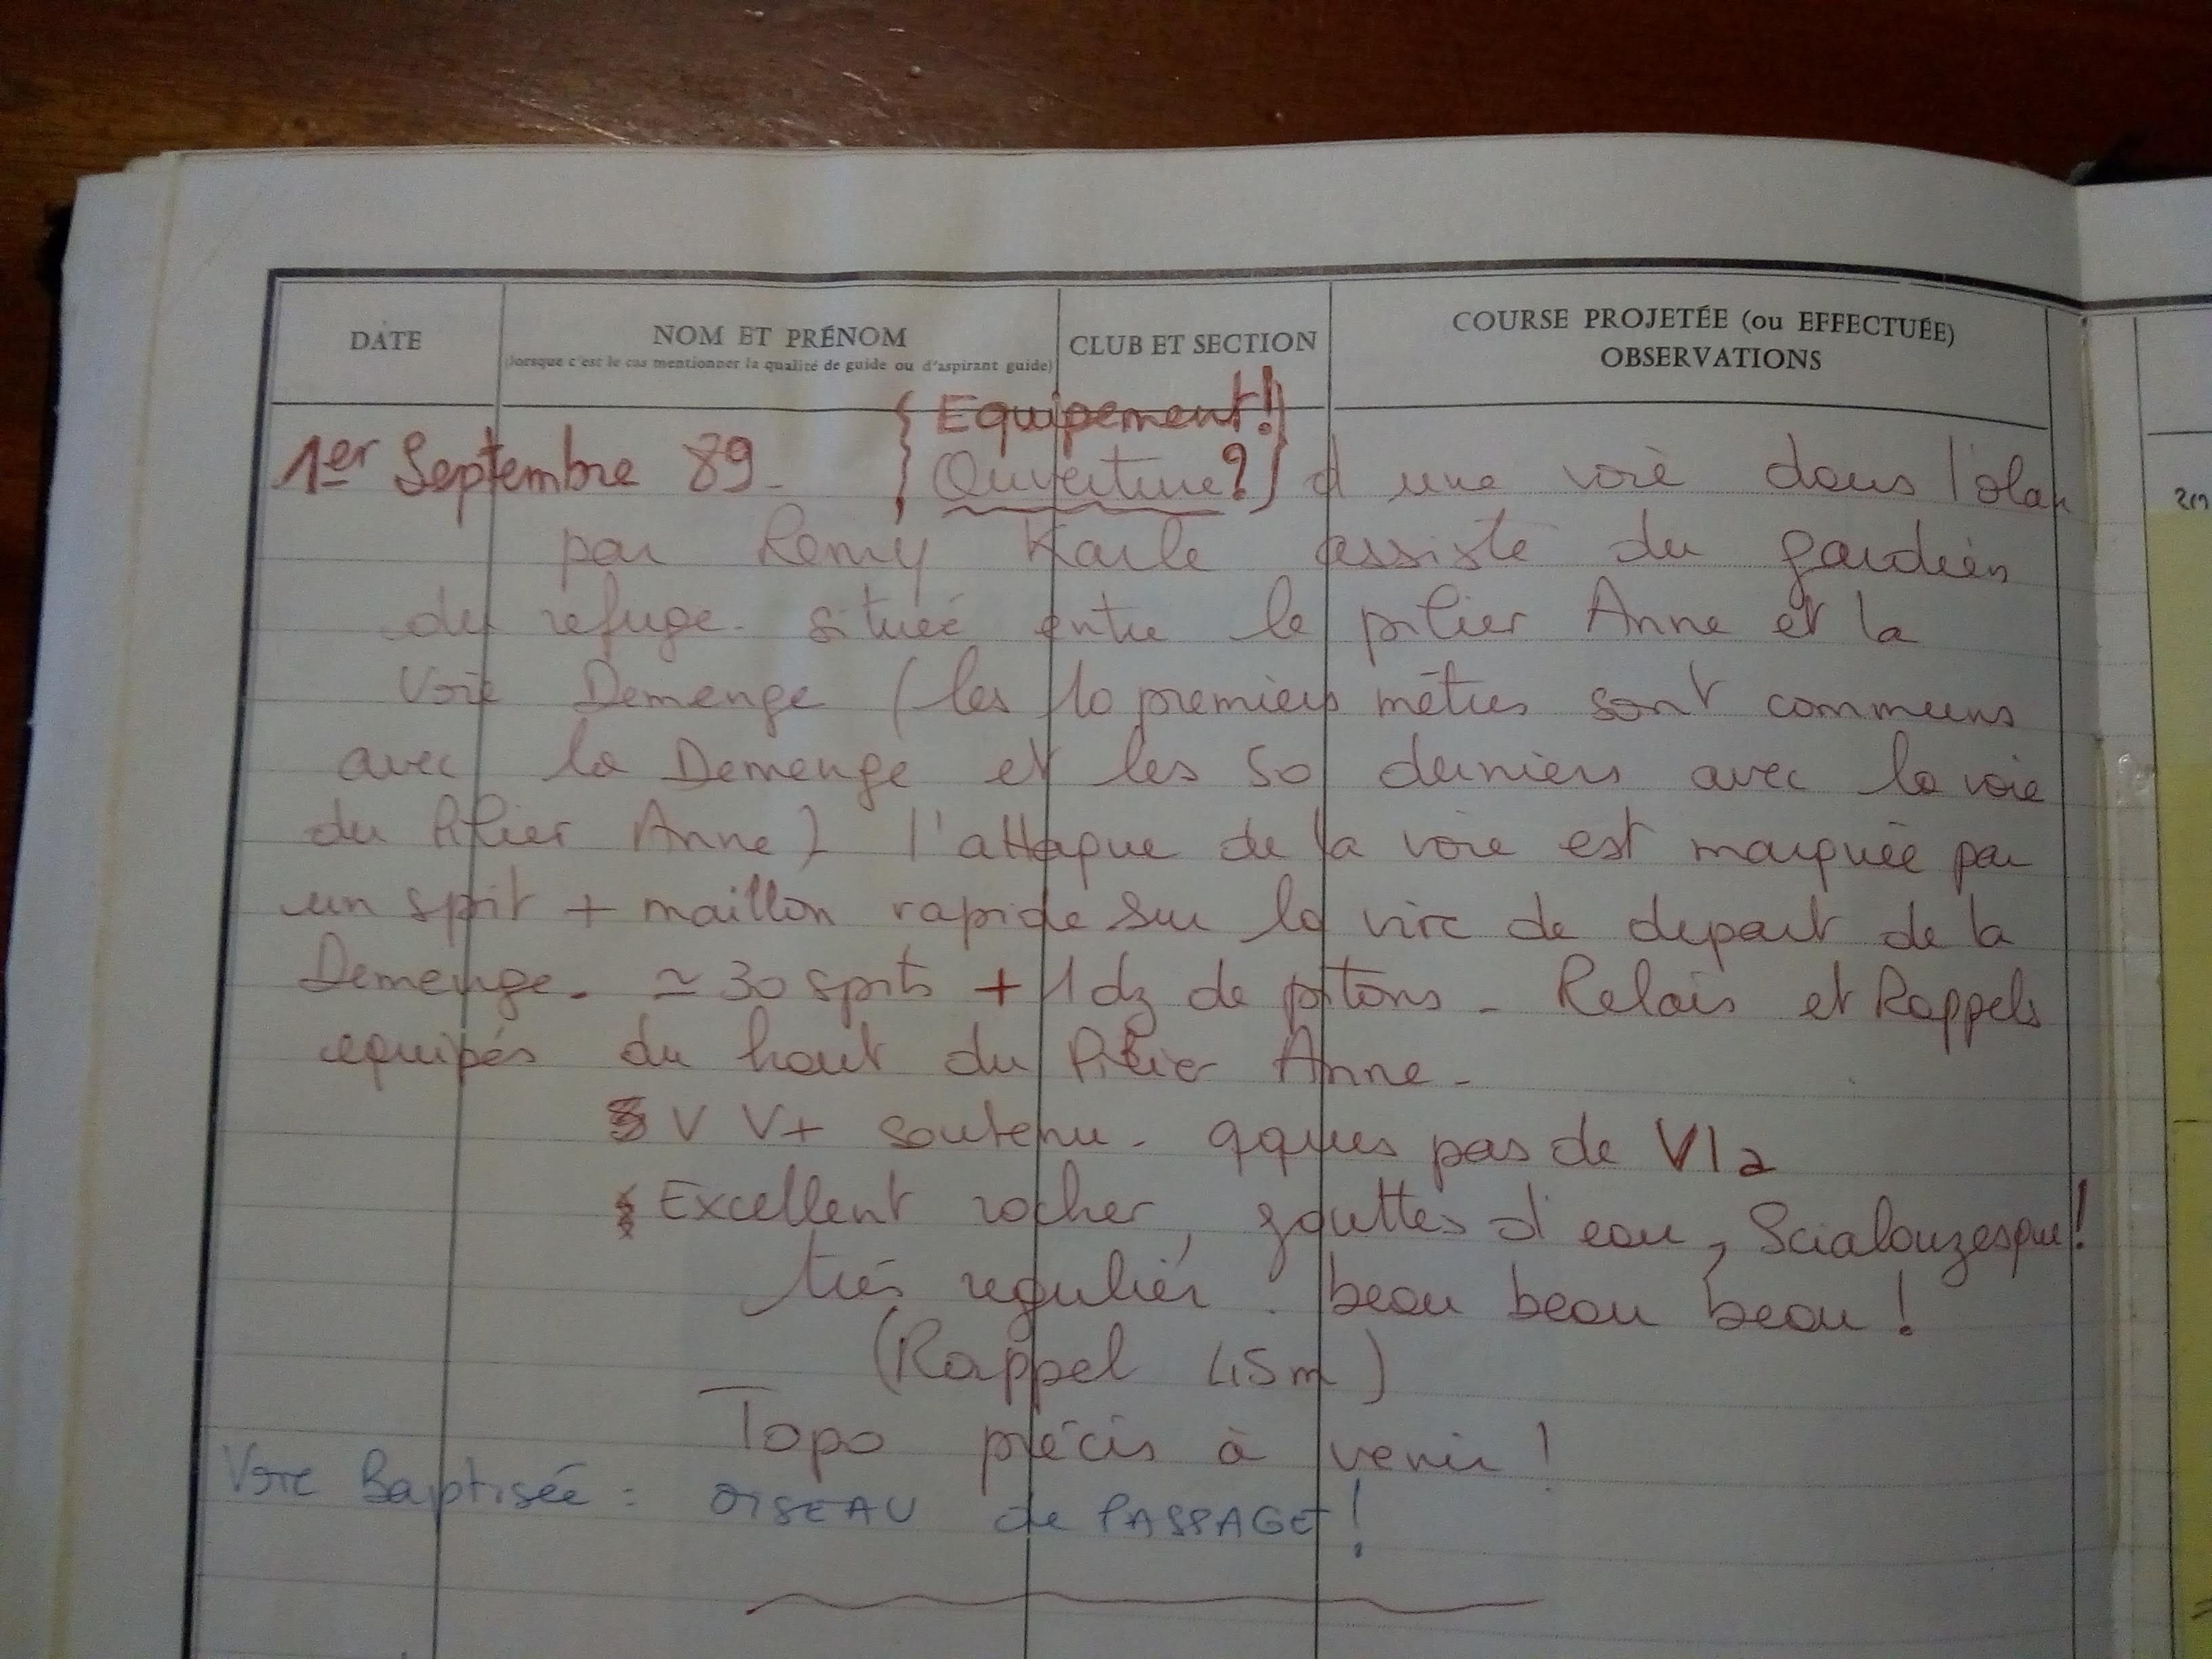 DATE
NOM ET PRÉNOM
(lorsque c'est le cas mentionner la qualité de guide ou d'aspirant guide)
CLUB ET SECTION
COURSE PROJETÉE (ou EFFECTUÉE)
OBSERVATIONS
Equipement!
1er Septembre 89. Ouverture? d une voie dans l'olan
par Remy Karle assisté du gardien
du refuge. située entre le pilier Anne et la
Voie Demenge (les 10 premiers mètres sont communs
avec la Demenge et les 50 derniers avec la voie
du Pilier Anne) l'attaque de la voie est marquée par
un spit + maillon rapide sur la vire de depart de la
Demenge. ≃ 30 spits + 1 dz de pitons - Relais et Rappels
equipés du haut du Pilier Anne -
V V+ soutenu - qques pas de VI a
Excellent rocher, gouttes d'eau, Scialouzesque!
très regulier. beau beau beau!
(Rappel 45m)
Topo précis à venir!
Voie Baptisée : OISEAU de PASSAGE!